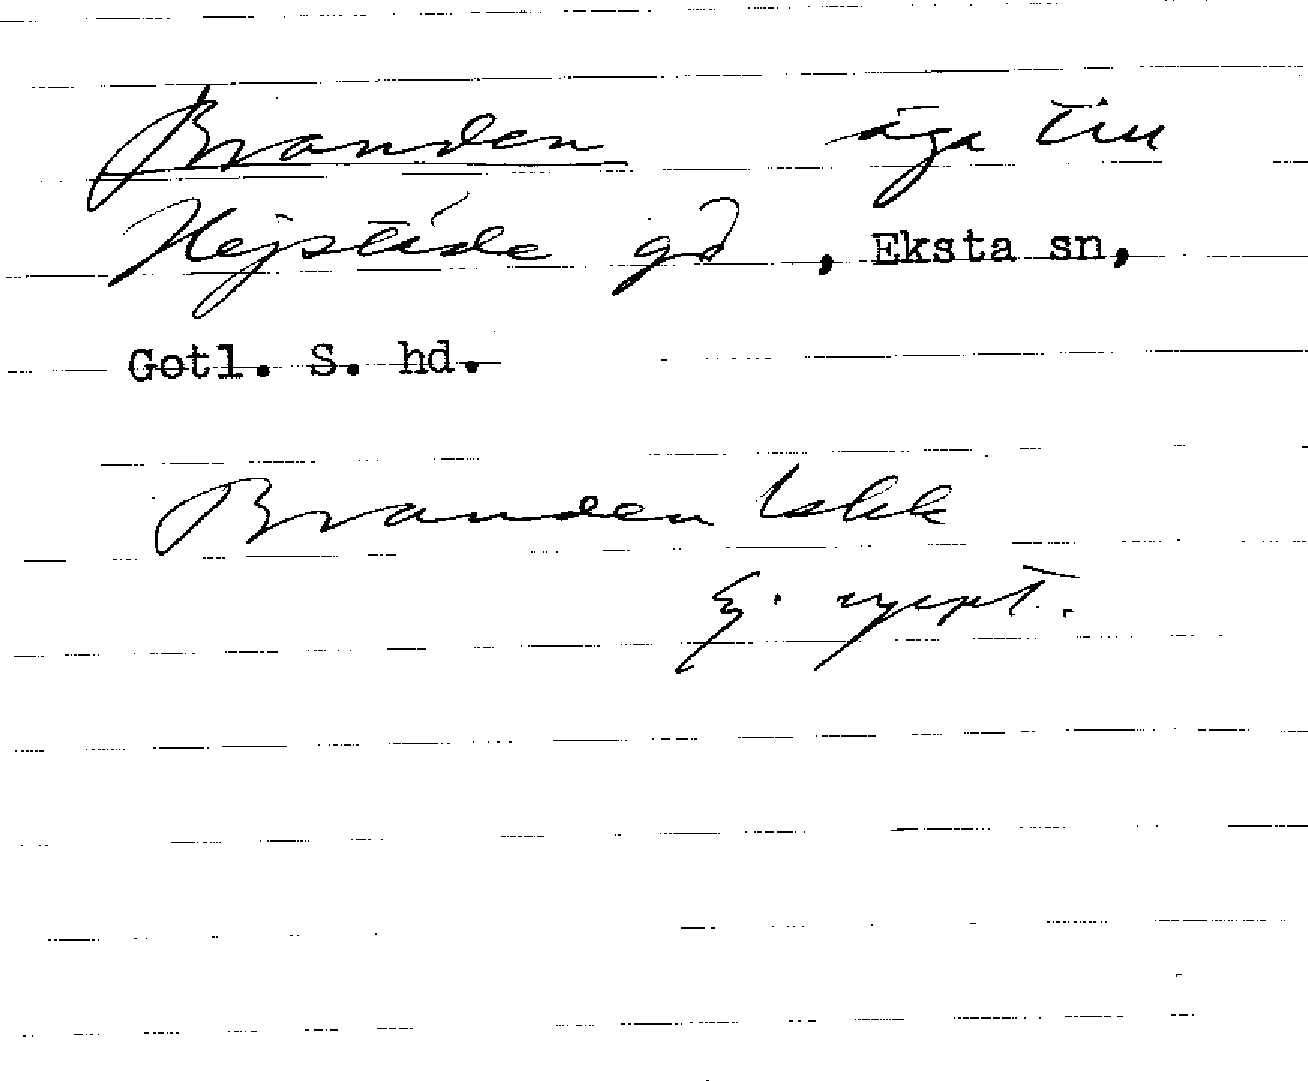 Branden äga till
Hejstäde gd, Eksta sn,
Gotl. S. hd.
Branden
Ej. uppt.